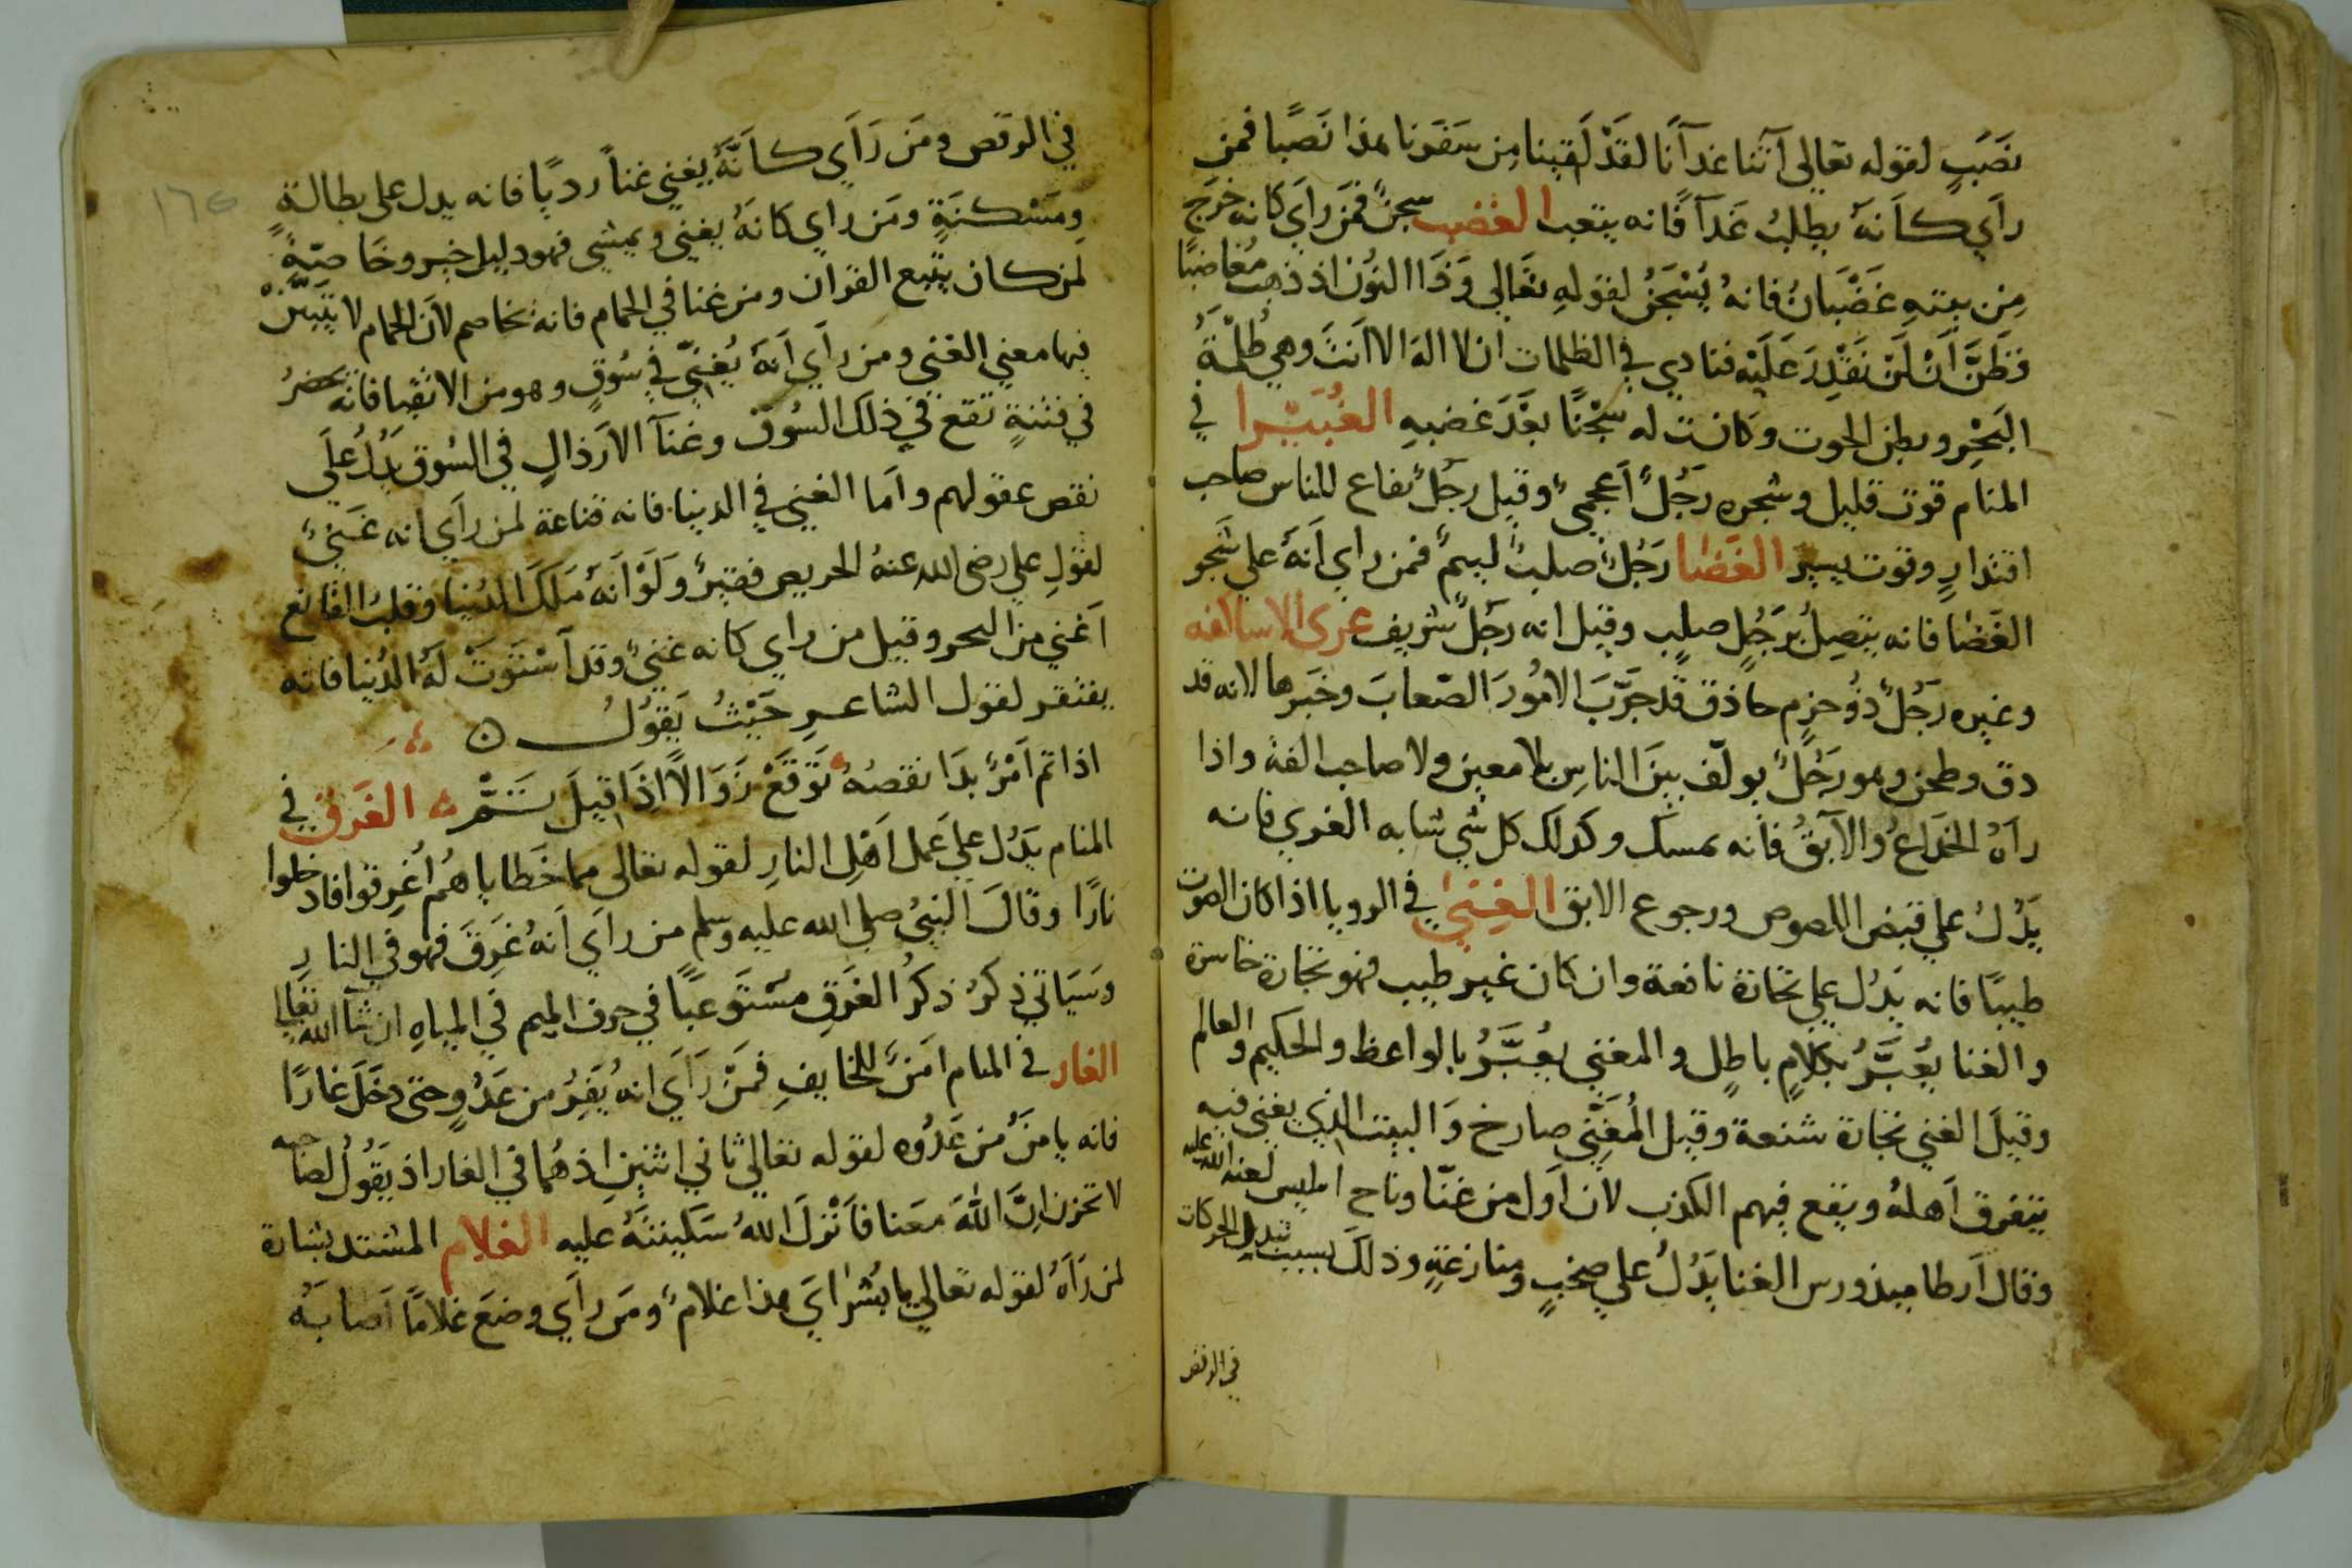 نصَبٍ لقوله تعالى آتنا غدآنا لقَدْ لَقينا مِن سَفَرنا هذا نَصَبًا فمن
رآي كاَنهُ يطلبُ غَدآً فانه يتعب الغضب سجنٌ فمَن رآي كانه خرَج
مِن بيتهِ غضْبَانُ فانهُ يُسْجَنُ لقولهِ تعَالى وَذَا النوُن اذ ذهبَ مُغاضبًا
فظَنَّ اَنْ لَنْ نَقْدِرَ عَلَيْه فنادي في الظلمات ان لا اله الا اَنتَ وهي ظُلْمَةُ
البَحْرِ وبطن الحوت وكانت له سِجْنًا بعْدَ غضبهِ الغُبَيْرا في
المنام قوت قليل وشجره رَجُلٌ اَعجميٌ وقيل رجُلٌ نفاع للناس صاحب
اقتدارٍ وقوت يسير الغَضَا رَجُلٌ صلبٌ ليمٌ فمن راي اَنهُ علي شجر
الغَضَا فانه يتصِلُ برَجُلٍ صلبٍ وقيل انه رَجلٌ شريف غرى الاساكفه
وغيره رَجُلٌ ذوُ حزمٍ حاذق قد جرَّبَ الامُورَ الصّعابَ وخبَرها لانه قد
دق وطحن وهو رَجُلٌ يولّف بينَ الناسِ بلا معين ولا صاحب الفة واذا
رآهُ الخداعُ والآبقُ فانه يمسك وكذلك كل شي شابه الغري فانه
يَدُلُ علي قبض اللصوص ورجوع الابق الغِنيٰ في الرويا اذا كان الصوت
طيبًا فانه يَدُل علي تجارة نافعة وان كان غير طيب فهو تجارة خاسرة
والغنا يُعَبَّرُ بكلامٍ باطلٍ والمغني يعُبَّرُ بالواعظ والحكيم والعالم
وقيلَ الغني تجارة شنعة وقيل المُغَنّي صارخ وَالبيت الذي يغني فيه
يتفرق اَهلهُ ويقع فيهم الكذب لان اَول من غنّا وناح ابليس لعنه الله عليه
وقال اَرطاميذورس الغنا يَدُلُ علي صخبٍ ومنازعَةٍ وذلكَ بسبب تبديل الحركات
في الرقص
في الرقص ومَن رَاَي كاَنَّهُ يغني غناً رديًا فانه يدل على بطالةٍ
ومَسْكنَةٍ ومَن راي كانهُ يغني ويمشي فهو دليل خير وخاصّةً
لمن كان يتبع القران ومن غنا في الحمام فانه تخاصم لاَن الحمام لا يتبيّنْ
فيها معني الغني ومن رآي اَنهُ يُغنيّ في سُوقٍ وهو من الاتقيا فانه يحضرُ
في فتنةٍ تقع في ذلك السُوق وغنآ الارذالِ في السُوق يَدُل علَي
نقص عقولهم واَما الغني في الدينا فانه قناعة لمن رآي انه غَنيٌ
لقولِ علي رضى الله عنهُ الحريص فقيرٌ ولَوْ اَنهُ مَلَكَ الدُنيا وقلبُ القانع
اَغني مِن البحر وقيل من راي كانه غنيٌ وقد آسْتَوتْ لَهُ الدُنيا فانه
يفتقر لقول الشاعرِ حَيْثُ يَقوُل
اذا تم اَمْرٌ بدَا نقصُهُ تَوَقَّعْ زَوَالاً اذَا قيلَ تَمّ الغَرَق في
المنام يَدُل علي عَمل اَهْلِ النارِ لقوله تعالى مما خَطاياهُم اُغرِقوا فادخلوا
نارًا وقالَ النبيُ صلي الله عليه وسلم من رآي اَنهُ غَرِقَ فهو في النارِ
وسَيَاتي ذِكرُ ذكرُ الغَرَقِ مسْتَوعبًا في حرف الميم في المياهِ ان شآ الله تعالى
الغار في المنام اَمنٌ للخايفِ فمَنْ رَاَي انهُ يَفِرُ من عَدُوٍ حتى دخَلَ غارًا
فانه يامَنُ من عَدُوه لقوله تعالي ثاني اثنينِ اذ هُما في الغار اذ يقوُل لصاحبه
لا تحزن اِنَّ اللهَ معَنا فاَنْزلَ اللهُ سَكينتَهُ عليه الغلام المشتد بشارة
لمن رَآهُ لقوله تعالي يا بُشْرايَ هذا غلامٌ ومَن رآي وضعَ غلامًا اَصابَهُ